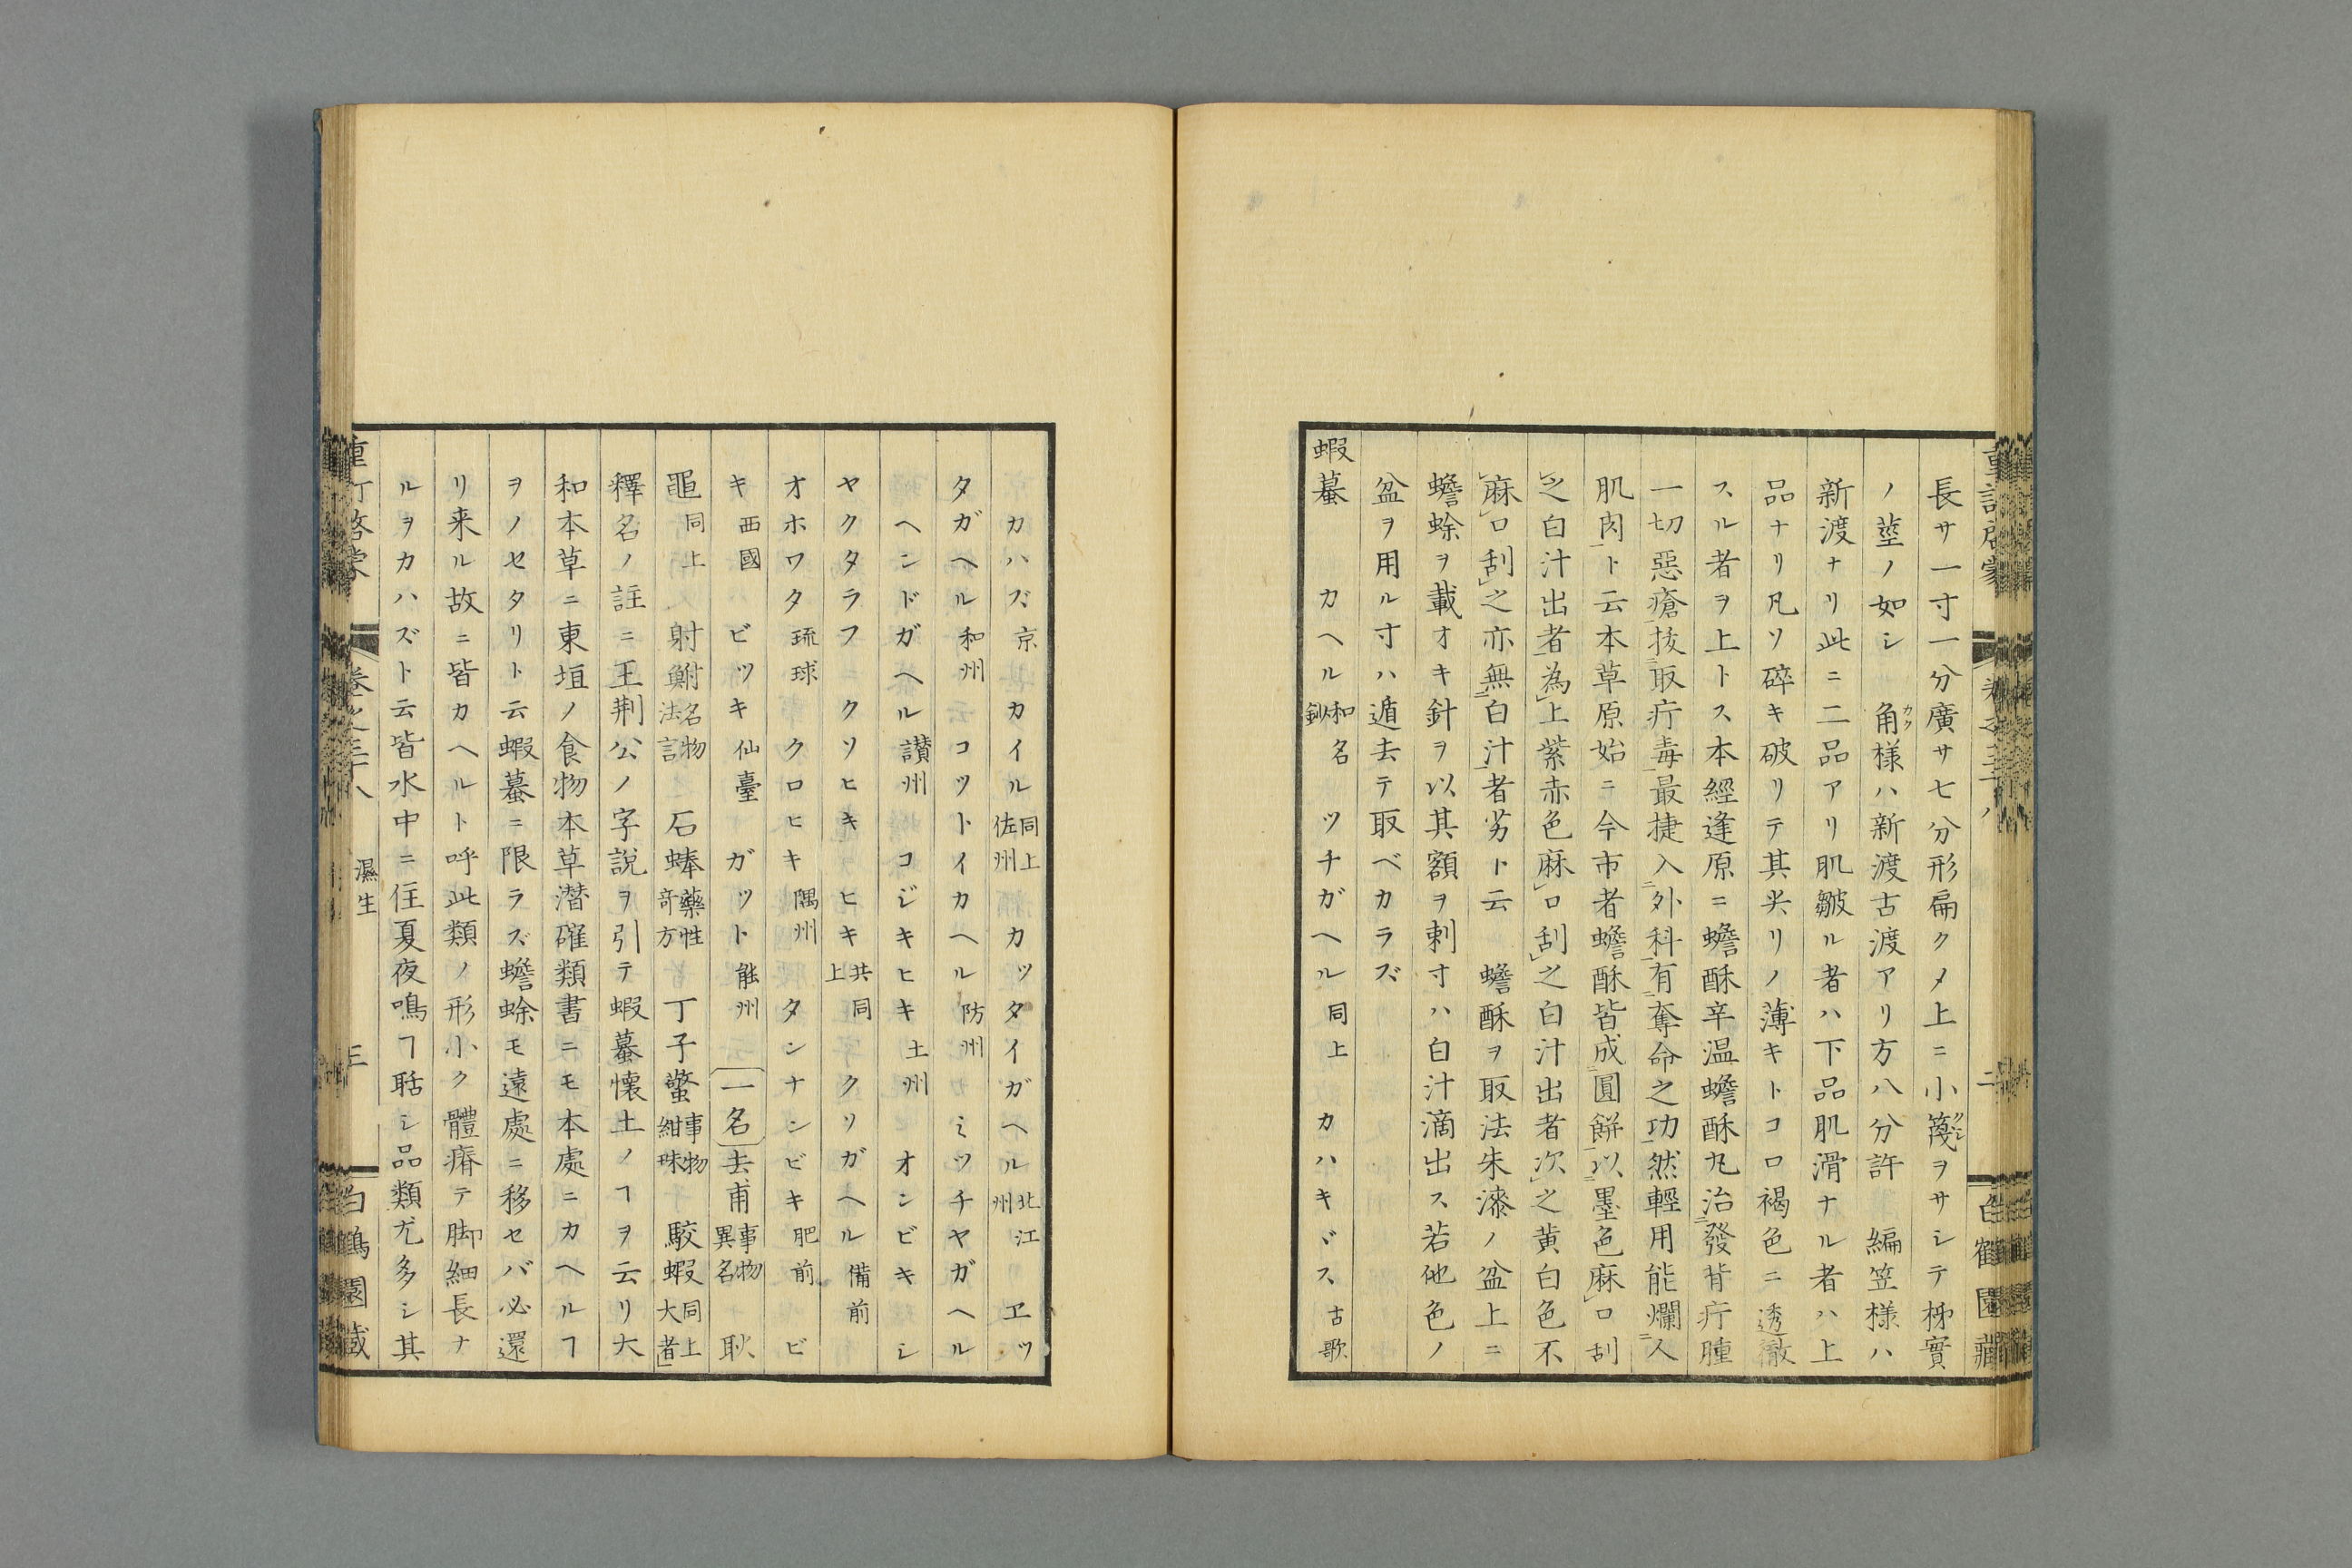 長サ一寸一分廣サ七分形扁クメ上ニ小篾ヲサシテ柹實
ノ莖ノ如シ 角様ハ新渡古渡アリ方八分許 編笠様ハ
新渡ナリ此ニ二品アリ肌皺ル者ハ下品肌滑ナル者ハ上
品ナリ凡ソ碎キ破リテ其尖リノ薄キトコロ褐色ニ透徹
スル者ヲ上トス本經逢原ニ蟾酥辛温蟾酥丸治發背疔腫
一切惡瘡拔取疔毒最捷入外科有奪命之功然輕用能爛人
肌肉ト云本草原始ニ今市者蟾酥皆成圓餅以墨色麻口刮
之白汁出者為上紫赤色麻口刮之白汁出者次之黄白色不
麻口刮之亦無白汁者劣ト云 蟾酥ヲ取法朱漆ノ盆上ニ
蟾蜍ヲ載オキ針ヲ以其額ヲ刺寸ハ白汁滴出ス若他色ノ
盆ヲ用ル寸ハ遁去テ取ベカラズ
蝦蟇 カヘル 和名鈔 ツチガヘル 同上 カハキヾス 古歌
カハズ 京 カイル 同上佐州 カツタイガヘル 北江州 ヱツ
タガヘル 和州 コツトイカヘル 防州 ミツチヤガヘル
ヘンドガヘル 讃州 コジキヒキ 土州 オンビキ シ
ヤクタラフ クソヒキ ヒキ 共同上 クリガヘル 備前
オホワタ 琉球 クロヒキ 隅州 タンナンビキ 肥前 ビ
キ 西國 ビツキ 仙臺 ガツト 能州 一名 去甫 事物異名 耿
黽 同上 射鮒 名物法言 石蜯 藥性奇方 丁子螯 事物紺珠 駮蝦 同上大者
釋名ノ註ニ王荆公ノ字說ヲ引テ蝦蟇懷土ノヿヲ云リ大
和本草ニ東垣ノ食物本草潜確類書ニモ本處ニカヘルヿ
ヲノセタリト云蝦蟇ニ限ラズ蟾蜍モ遠處ニ移セバ必還
リ来ル故ニ皆カヘルト呼此類ノ形小ク體瘠テ脚細長ナ
ルヲカハズト云皆水中ニ住夏夜鳴ヿ聒シ品類尤多シ其
濕生
三